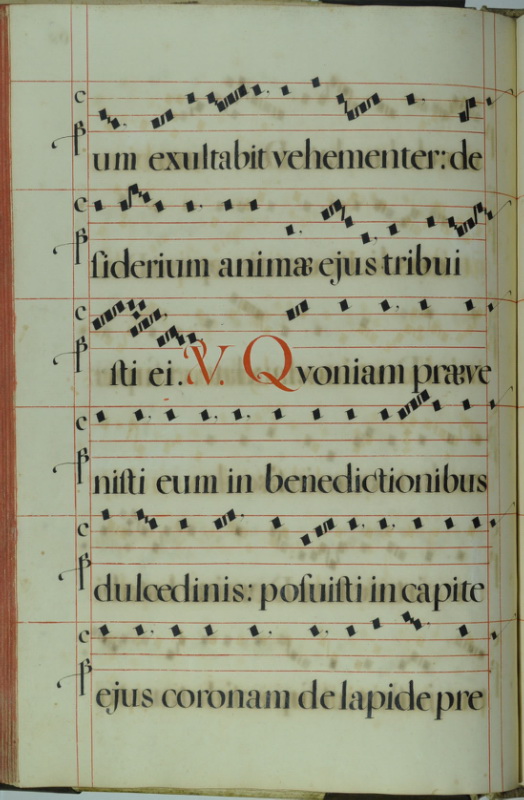 um exultabit vehementer: de
ſiderium animæ ejus tribui
ſti ei. V. Quoniam præve
niſti eum in benedictionibus
dulcedinis: poſuiſti in capite
ejus coronam de lapide pre